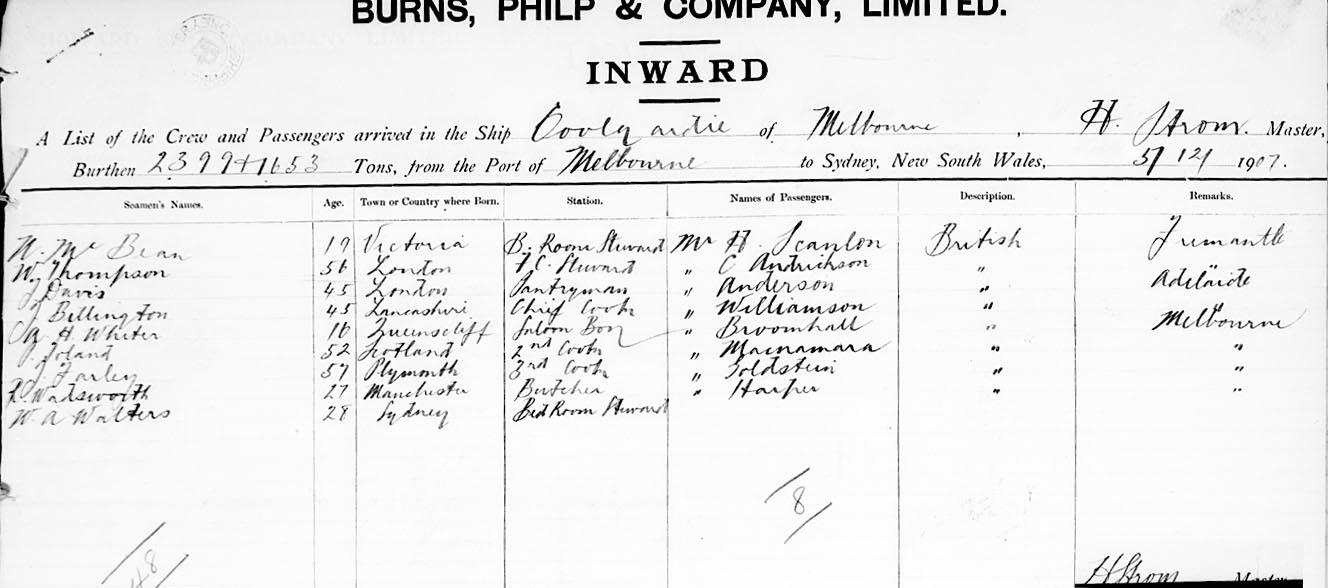 BURNS, PHILP & COMPANY, LIMITED.
INWARD
A List of the Crew and Passengers arrived in the Ship Coolgardie of Melbourne, H. Strom. Master,
Burthen 2399+1653 Tons, from the Port of Melbourne to Sydney, New South Wales, 5/12/1907.
Seamen's Names. Age. Town or Country where Born. Station. Names of Passengers. Description. Remarks.
W. Mc Bean 19 Victoria B. Room Steward Mr H. Scanlon British Fremantle
W. Thompson 56 London F.C. Steward " C Andrickson " "
J Davis 45 London Pantryman " Anderson " Adelaide
J Billington 45 Lancashire Chief Cook " Williamson " "
H. Whiter 16 Queenscliff Saloon Boy " Broomhall " Melbourne
J. Toland 52 Scotland 2nd Cook " Macnamara " "
J. Farley 57 Plymouth 3rd Cook " Goldstein " "
Wadsworth 27 Manchester Butcher " Harper " "
W. A Walters 28 Sydney Bed Room Steward
8
48
H Strom Master